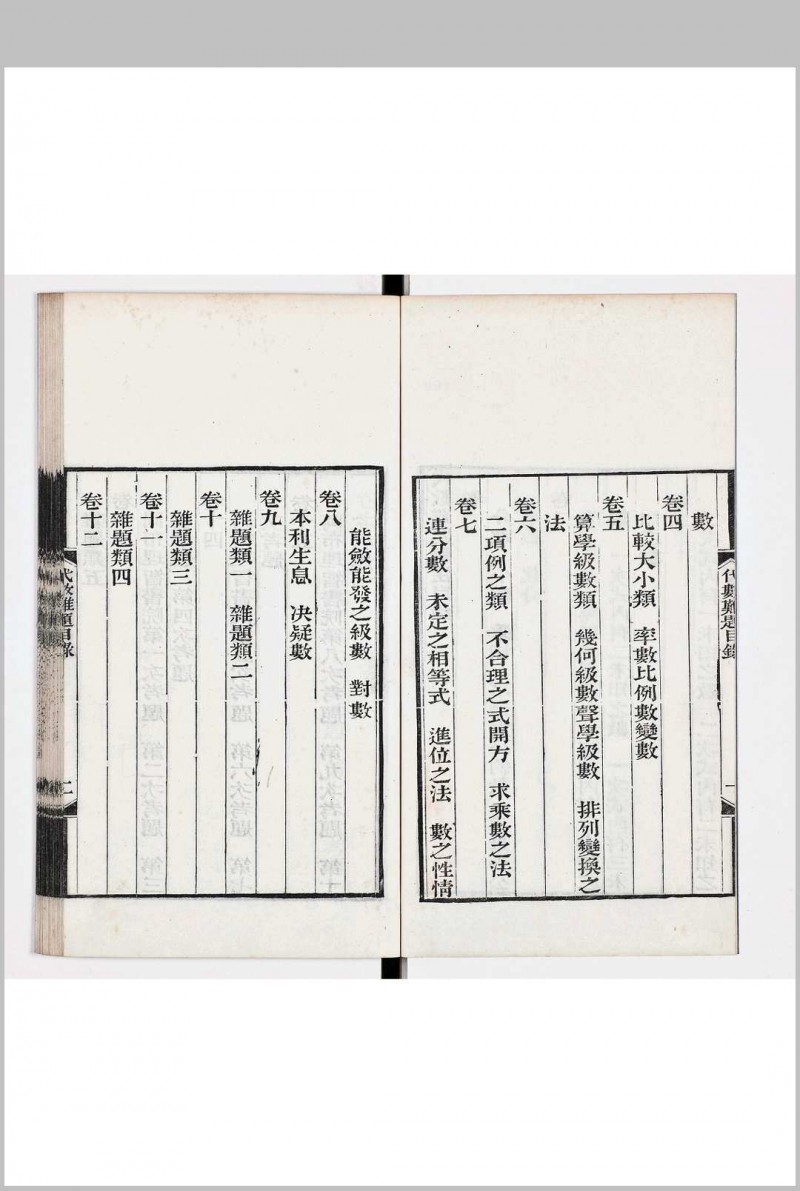 數
卷四
比較大小類 率數比例數變數
卷五
算學級數類 幾何級數聲學級數 排列變換之
法
卷六
二項例之類 不合理之式開方 求乘數之法
卷七
連分數 未定之相等式 進位之法 數之性情
代數難題目錄
一
能斂能發之級數 對數
卷八
本利生息 决疑數
卷九
雜題類一 雜題類二
卷十
雜題類三
卷十一
雜題類四
卷十二
代數難題目錄
二